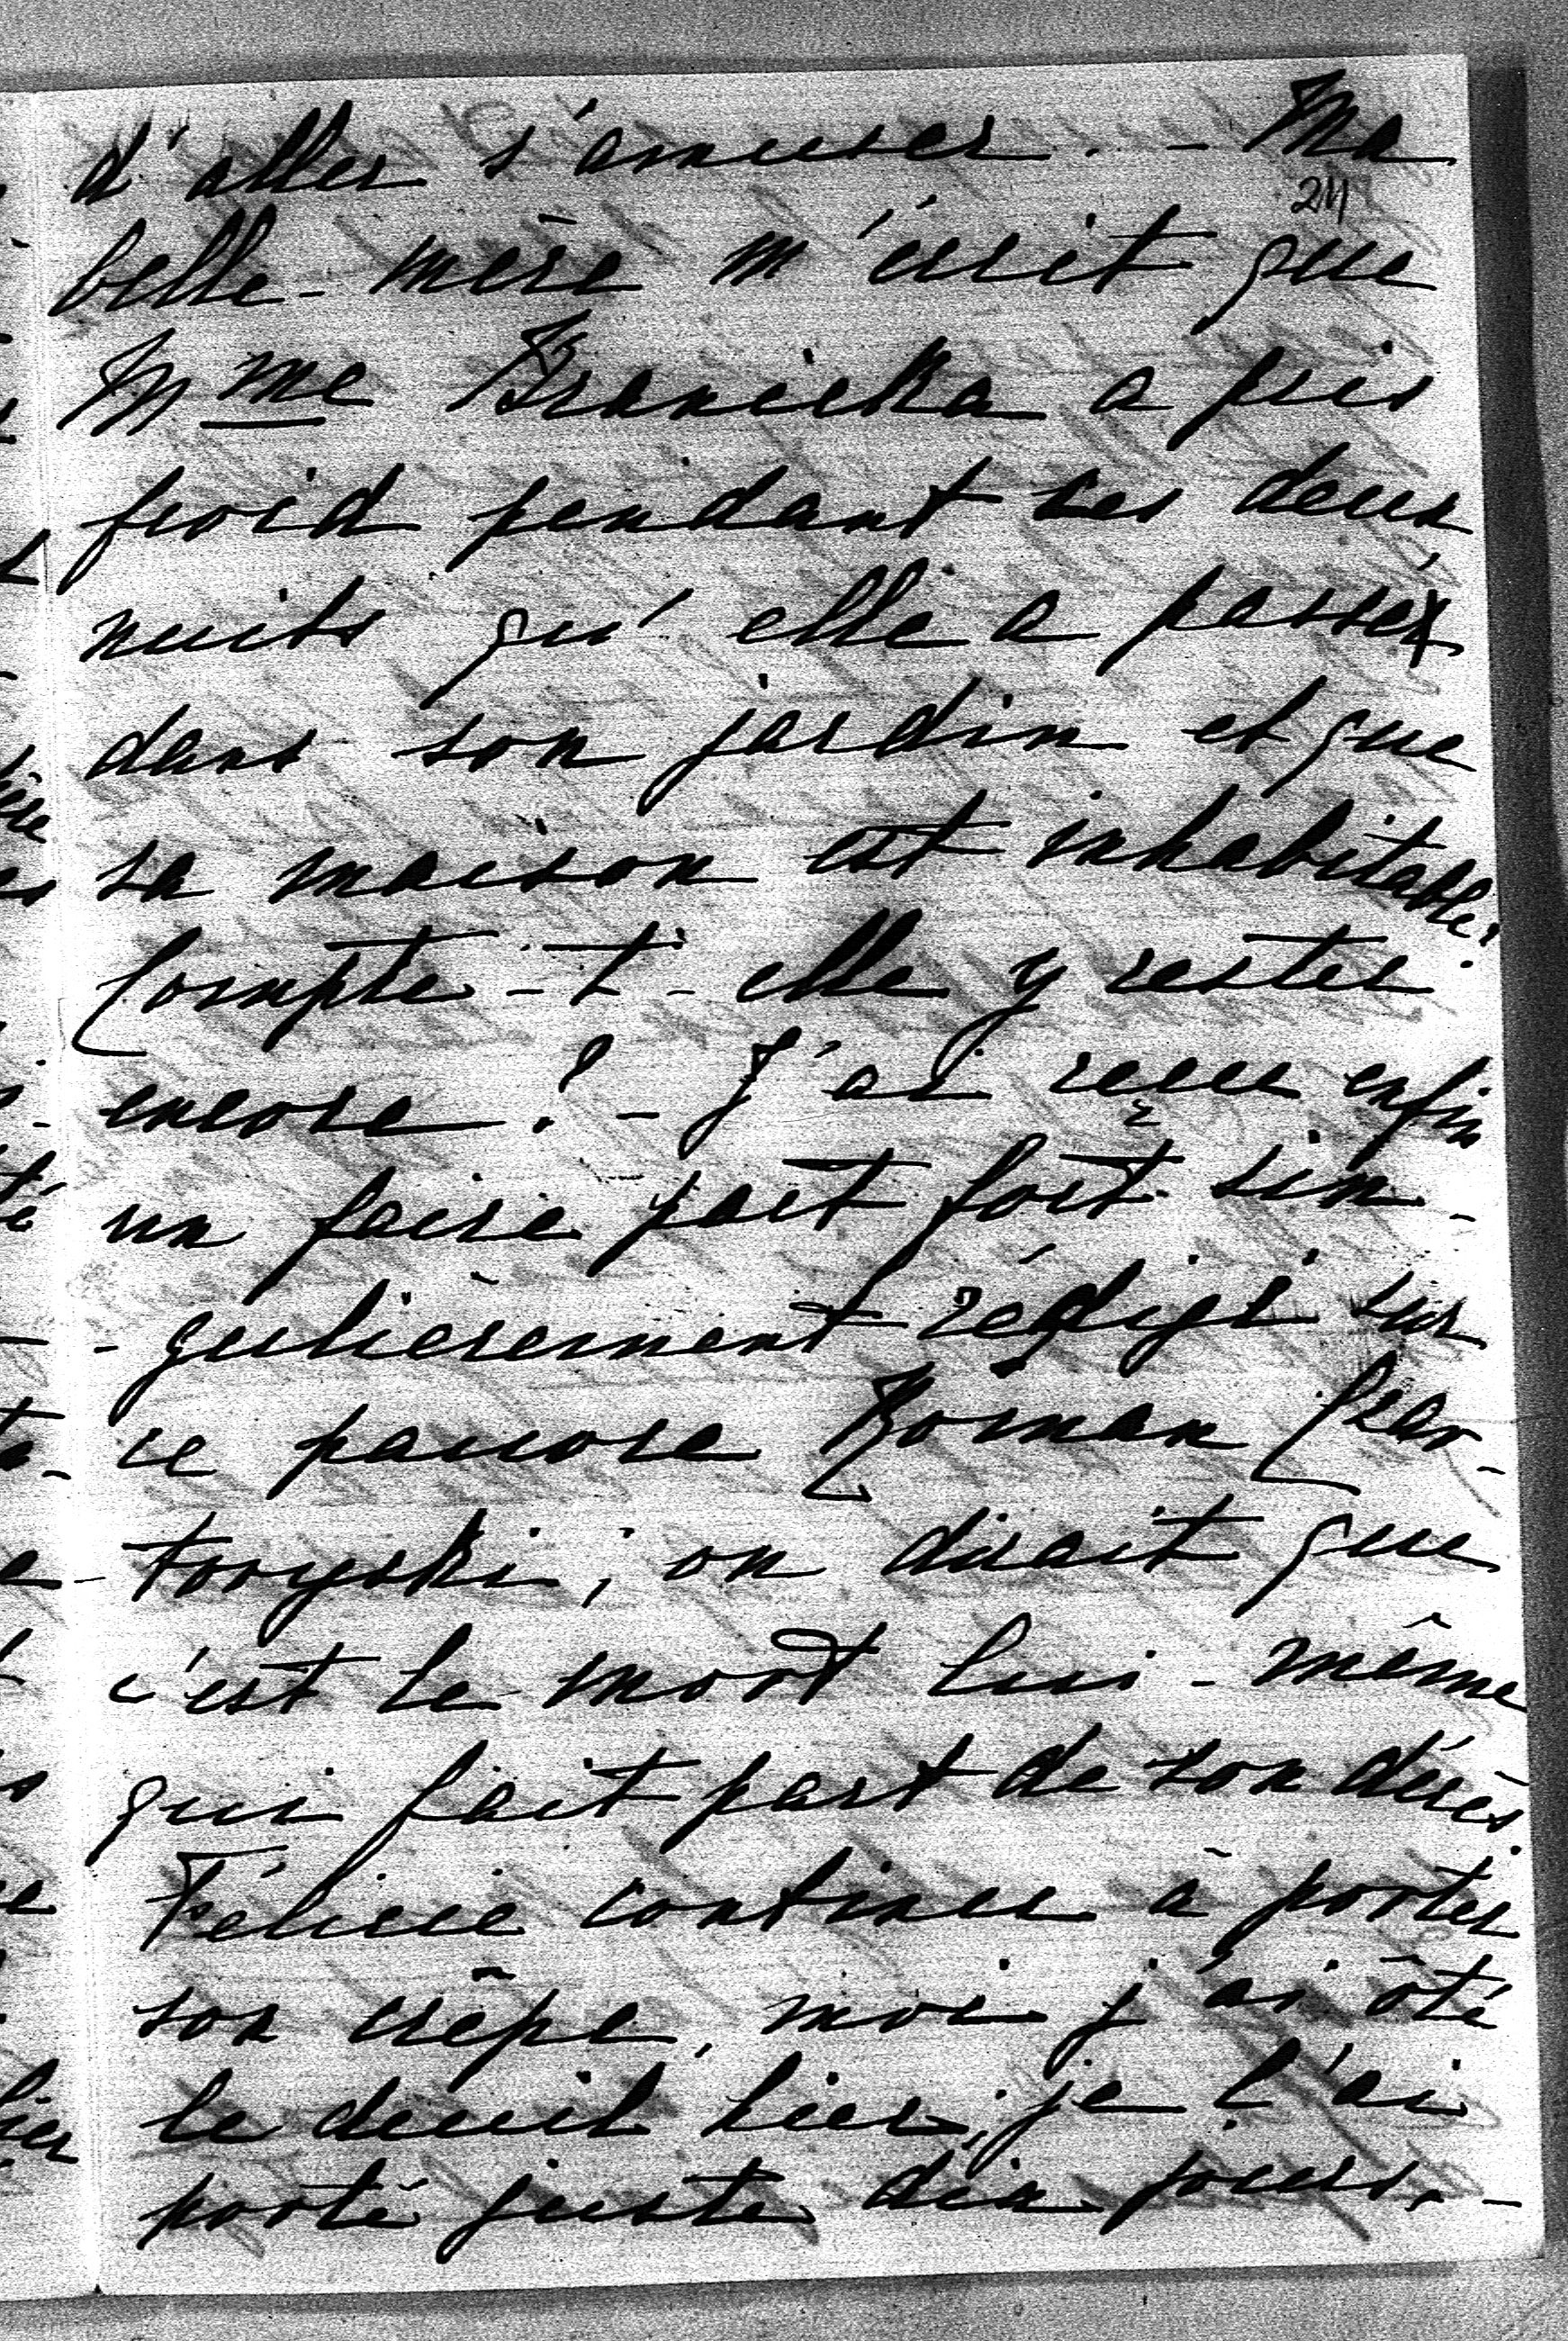 d'aller s'amuser. - Ma
241
belle-mère m'écrit que
Mme Branicka a pris
froid pendant les deux
nuits qu'elle a passé
dans son jardin et que
sa maison est inhabitable!
Compte-t-elle y rester
encore? - J'ai reçu enfin
un faire part fort sin-
-gulièrement rédigé sur
ce pauvre Roman Czar-
-toryski; on dirait que
c'est le mort lui-même
qui fait part de son décès.
Félicie continue à porter
son crêpe, moi j'ai ôté
le deuil hier, je l'ai
porté juste dix jours. -